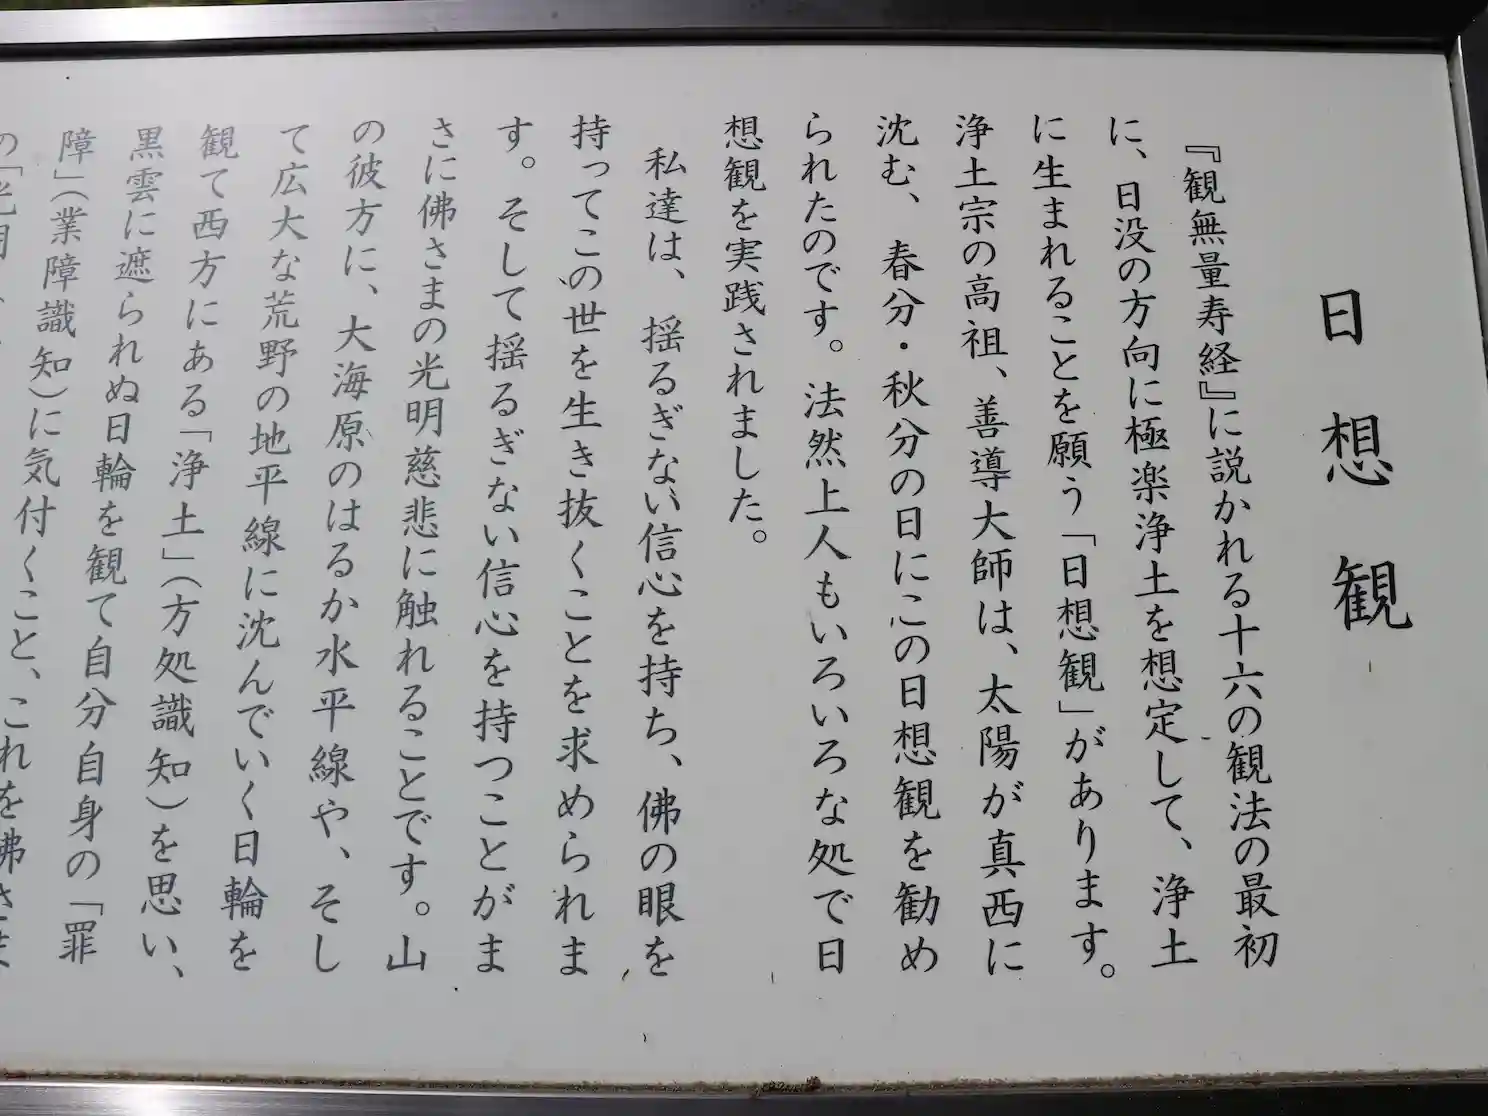 日想観
『観無量寿経』に説かれる十六の観法の最初
に、日没の方向に極楽浄土を想定して、浄土
に生まれることを願う「日想観」があります。
浄土宗の高祖、善導大師は、太陽が真西に
沈む、春分・秋分の日にこの日想観を勧め
られたのです。法然上人もいろいろな処で日
想観を実践されました。
私達は、揺るぎない信心を持ち、佛の眼を
持ってこの世を生き抜くことを求められま
す。そして揺るぎない信心を持つことがま
さに佛さまの光明慈悲に触れることです。山
の彼方に、大海原のはるか水平線や、そし
て広大な荒野の地平線に沈んでいく日輪を
観て西方にある「浄土」(方処識知)を思い、
黒雲に遮られぬ日輪を観て自分自身の「罪
障」(業障識知)に気付くこと、これを佛さま
の「光明